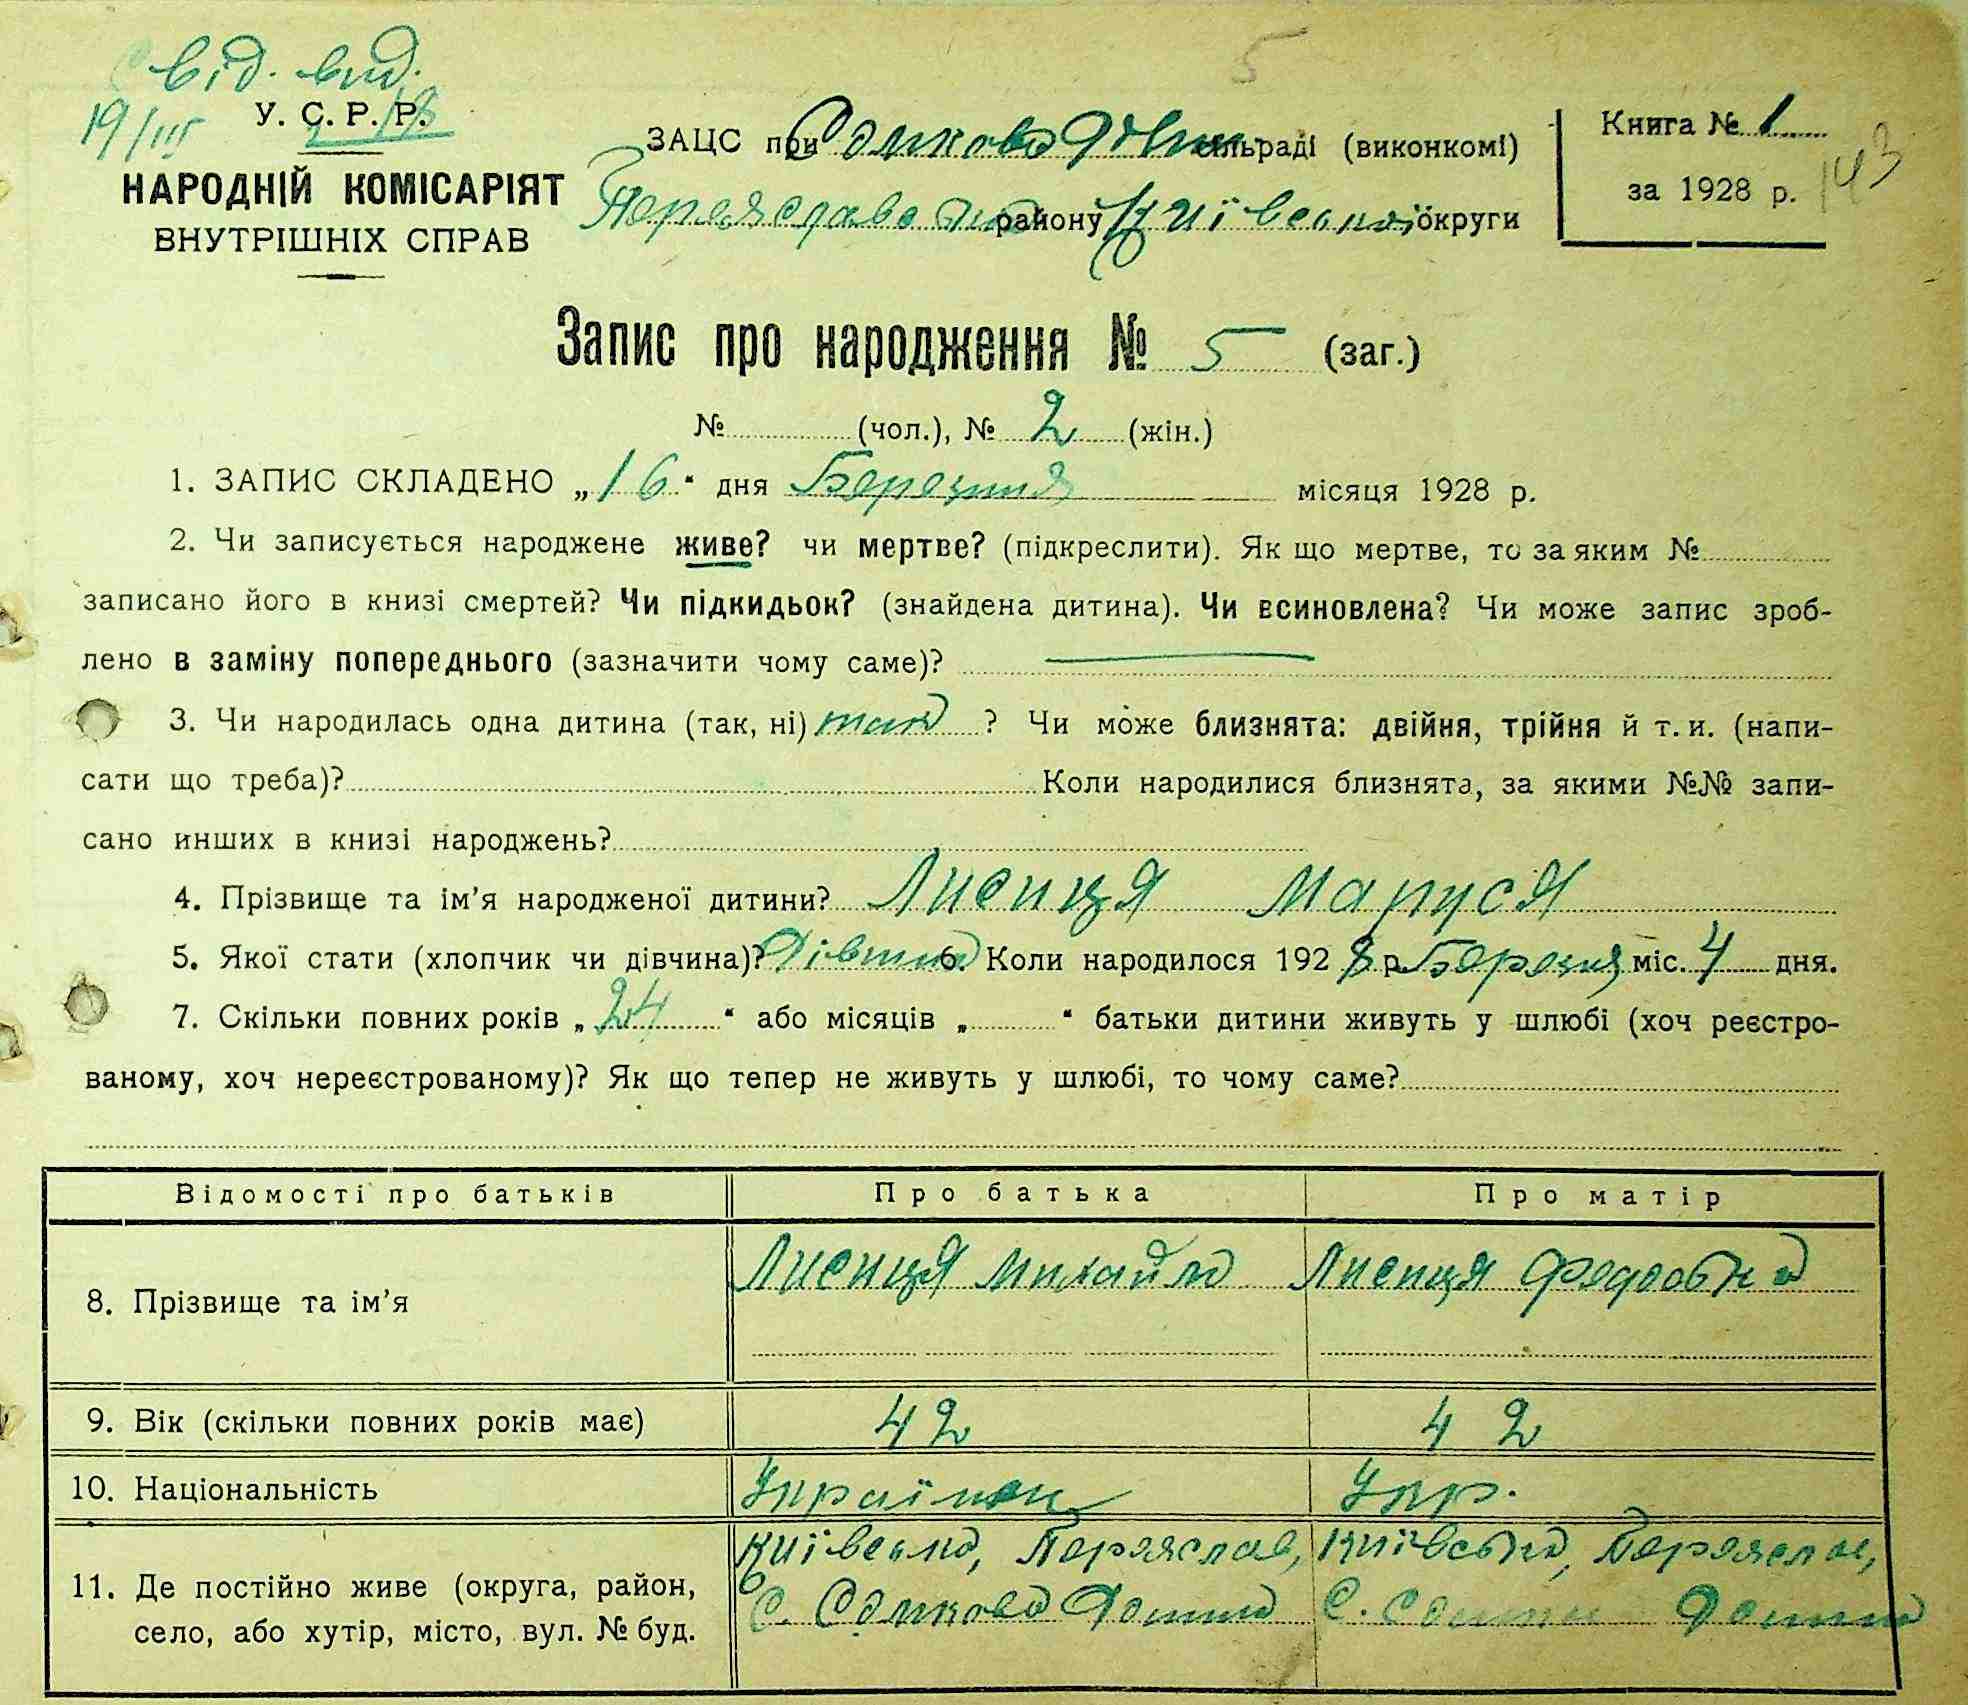 5
Свід. вид.
19/III 28
У. С. Р. Р.
НАРОДНІЙ КОМІСАРІЯТ
ВНУТРІШНІХ СПРАВ
ЗАЦС при Сомково Долин. сільраді (виконкомі)
Переяславськ району Київської округи
Книга № 1
за 1928 р.
143
Запис про народження № 5 (заг.)
№ (чол.), № 2 (жін.)
1. ЗАПИС СКЛАДЕНО „16“ дня Березння місяця 1928 р.
2. Чи записується народжене живе? чи мертве? (підкреслити). Як що мертве, то за яким №
записано його в книзі смертей? Чи підкидьок? (знайдена дитина). Чи всиновлена? Чи може запис зроб-
лено в заміну попереднього (зазначити чому саме)?
3. Чи народилась одна дитина (так, ні) так ? Чи може близнята: двійня, трійня й т. и. (напи-
сати що треба)? Коли народилися близнята, за якими №№ запи-
сано инших в книзі народжень?
4. Прізвище та ім'я народженої дитини? Лисиця Маруся
5. Якої стати (хлопчик чи дівчина)? Дівчина 6. Коли народилося 1928 р. Березня міс. 4 дня.
7. Скільки повних років „24“ або місяців „ “ батьки дитини живуть у шлюбі (хоч реєстро-
ваному, хоч нереєстрованому)? Як що тепер не живуть у шлюбі, то чому саме?
Відомості про батьків Про батька Про матір
8. Прізвище та ім'я Лисиця Михайло Лисиця
9. Вік (скільки повних років має) 42 42
10. Національність Українець Укр.
11. Де постійно живе (округа, район,
село, або хутір, місто, вул. № буд.
Київська, Переяслав,
С. Сомкова Долина
Київська, Переяслав,
С. Долина